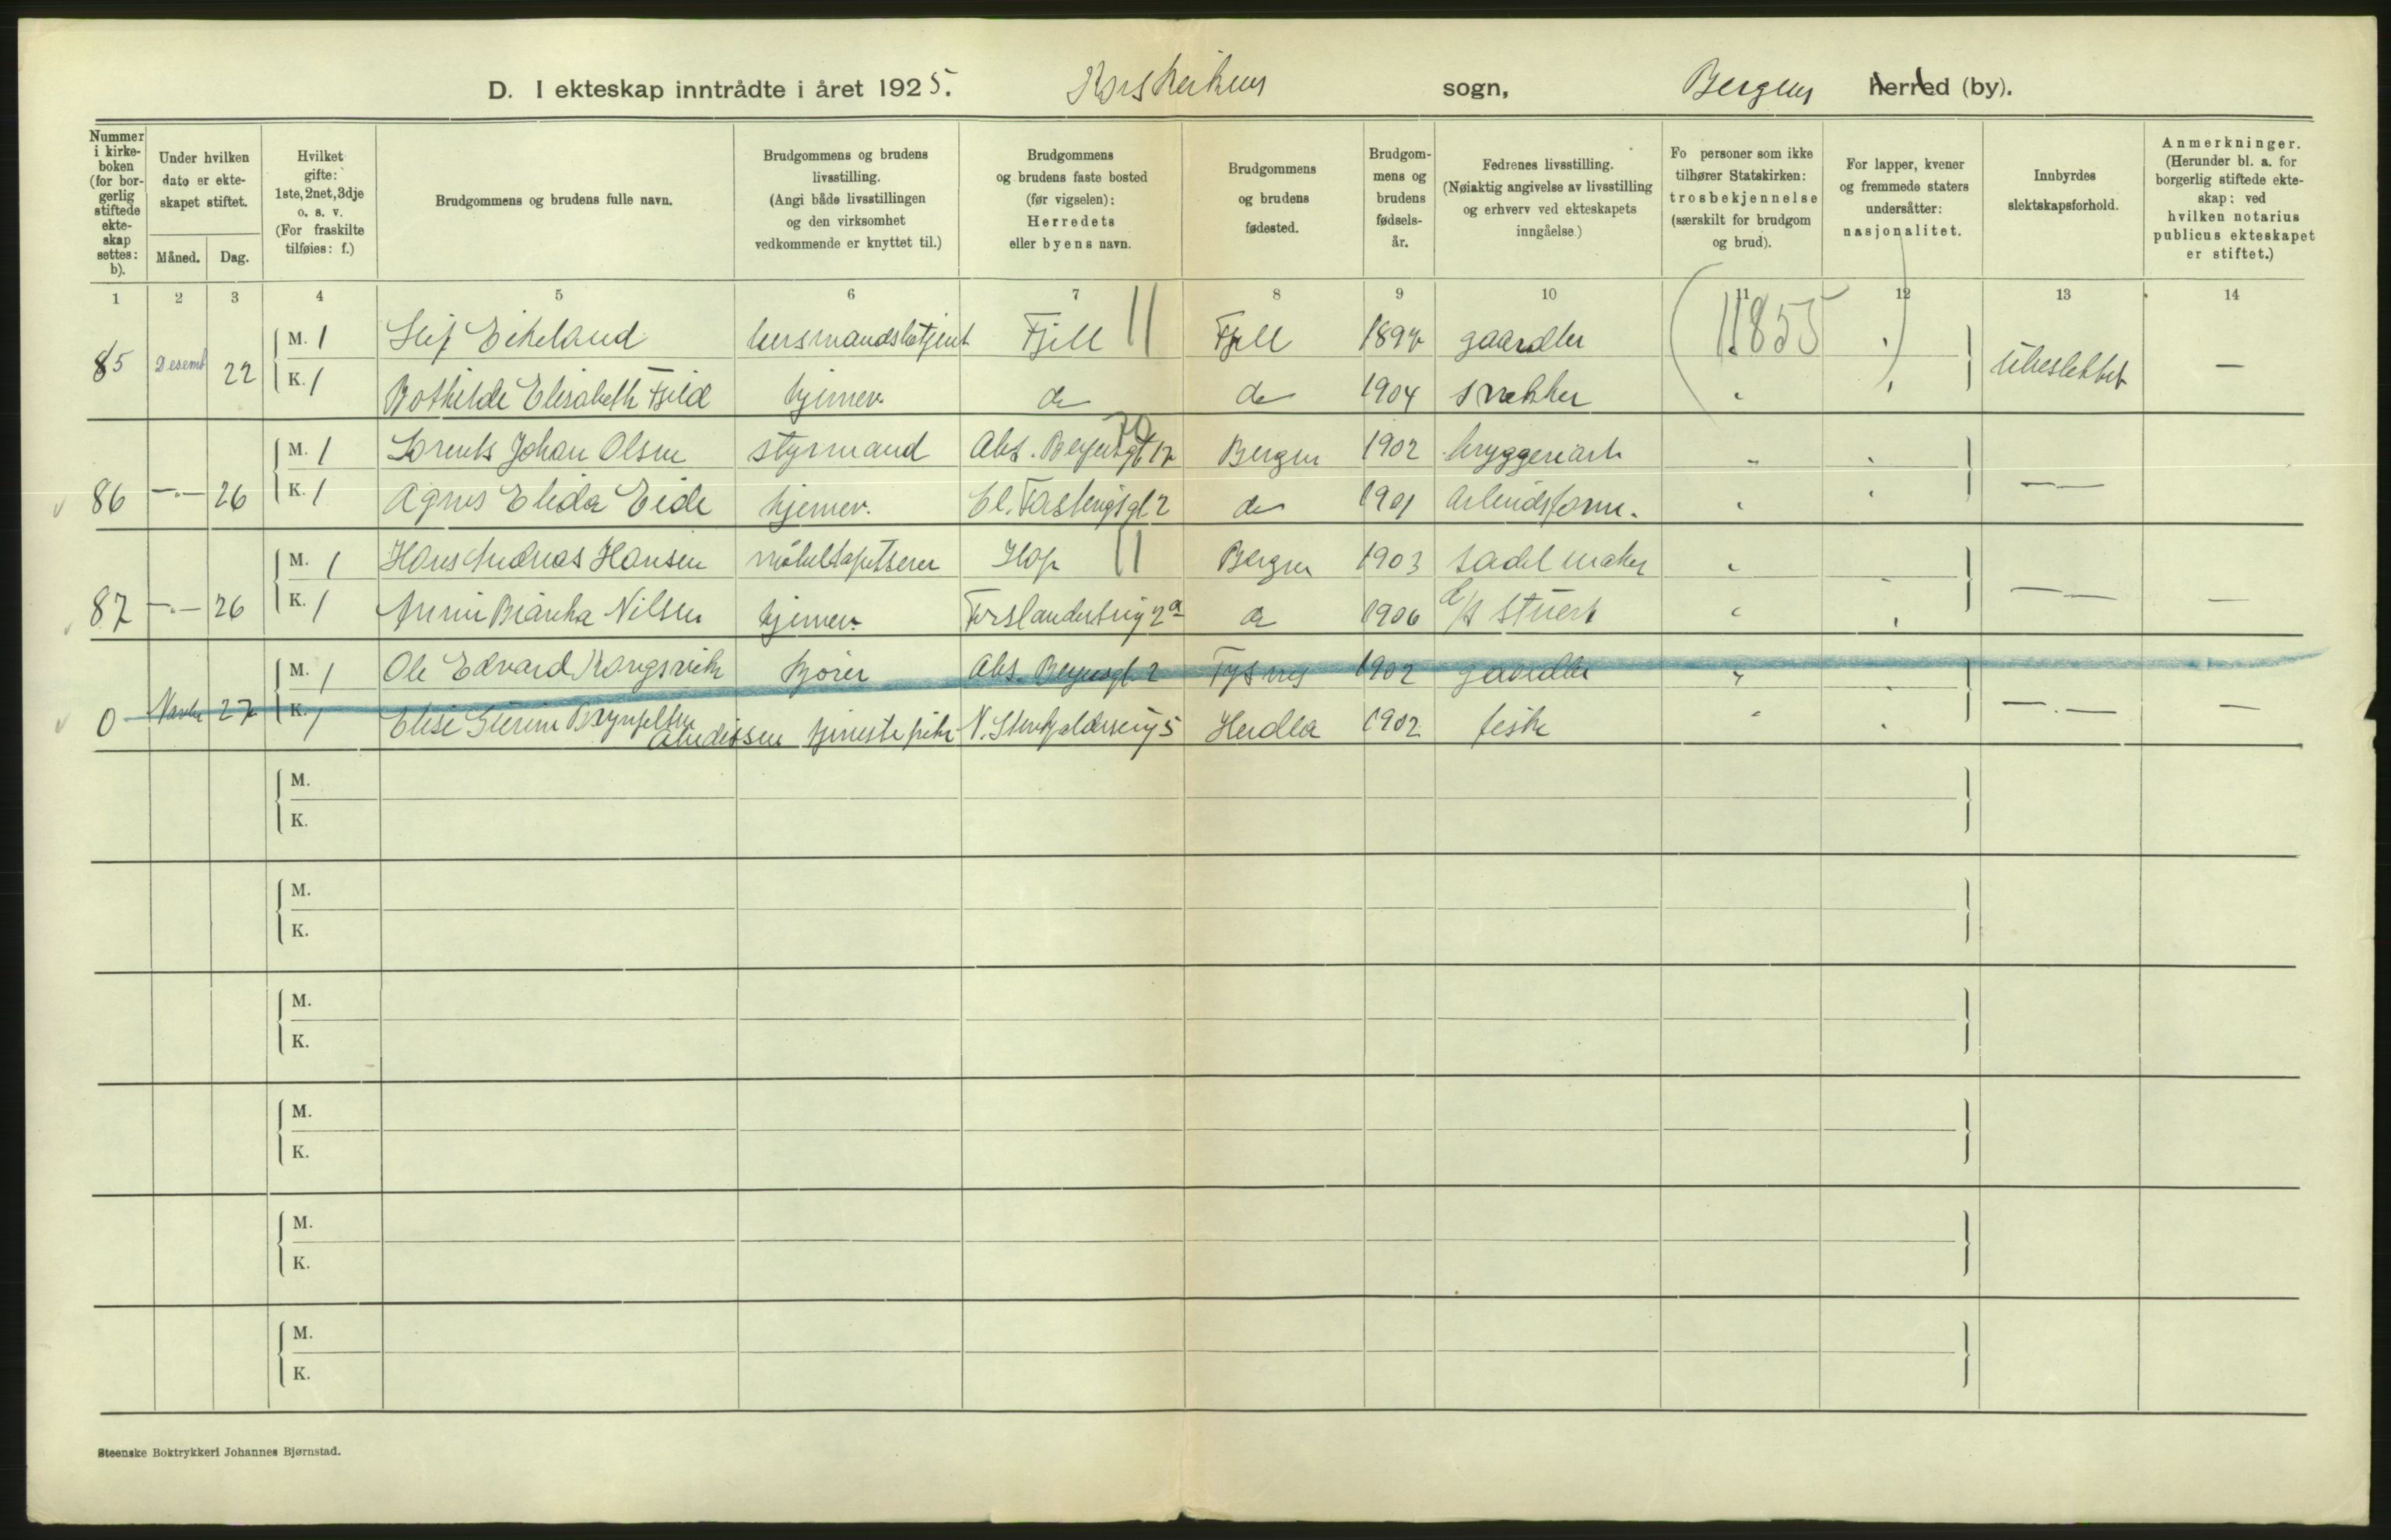 D. I ekteskap inntrådte i året 1925. Korskirkens sogn, Bergens herred (by).
Nummer i kirke-boken (for bor-gerlig stiftede ekte-skap settes: b).
Under hvilken dato er ekte-skapet stiftet.
Måned. Dag.
Hvilket gifte: 1ste, 2net, 3dje o. s. v. (For fraskilte tilføies: f.)
Brudgommens og brudens fulle navn.
Brudgommens og brudens livsstilling. (Angi både livsstillingen og den virksomhet vedkommende er knyttet til.)
Brudgommens og brudens faste bosted (før vigselen): Herredets eller byens navn.
Brudgommens og brudens fødested.
Brudgom-mens og brudens fødsels-år.
Fedrenes livsstilling. (Nøiaktig angivelse av livsstilling og erhverv ved ekteskapets inngåelse.)
Fo personer som ikke tilhører Statskirken: trosbekjennelse (særskilt for brudgom og brud).
For lapper, kvener og fremmede staters undersåtter: nasjonalitet.
Innbyrdes slektskapsforhold.
Anmerkninger. (Herunder bl. a. for borgerlig stiftede ekte-skap: ved hvilken notarius publicus ekteskapet er stiftet.)
1 2 3 4 5 6 7 8 9 10 11 12 13 14
M. 1 Leif Eikeland lensmandsbetjent Fjell || Fjell 1897 gaardbr (1855)
85 Desemb 22 K. 1 Bothilde Elisabeth Fjeld hjemmev. do do 1904 snekker " " Ubeslektet —
M. 1 Lorents Johan Olsen styrmand Abs. Beyersgt 17 Bergen 1902 bryggeriarb "
86 —"— 26 K. 1 Agnes Elida Eide hjemmev. do 1901 Arbeidsform. " —"—
M. 1 Hans Andreas Hansen møbeltapetserer Hop || Bergen 1903 sadelmaker "
87 —"— 26 K. 1 Anni Bianka Nilsen hjemmev. 2a do 1906 d/s stuert " —"— —
M. 1 Ole Edvard Kongsvik kjører Abs. Beyersgt. 2 Tysnes 1902 gaardbr "
0 27 K. 1 Elise Brynjelsen tjenestepike Herdla 1902 fisker " —"— —
M.
K.
M.
K.
M.
K.
M.
K.
M.
K.
M.
K.
Steenske Boktrykkeri Johannes Bjørnstad.